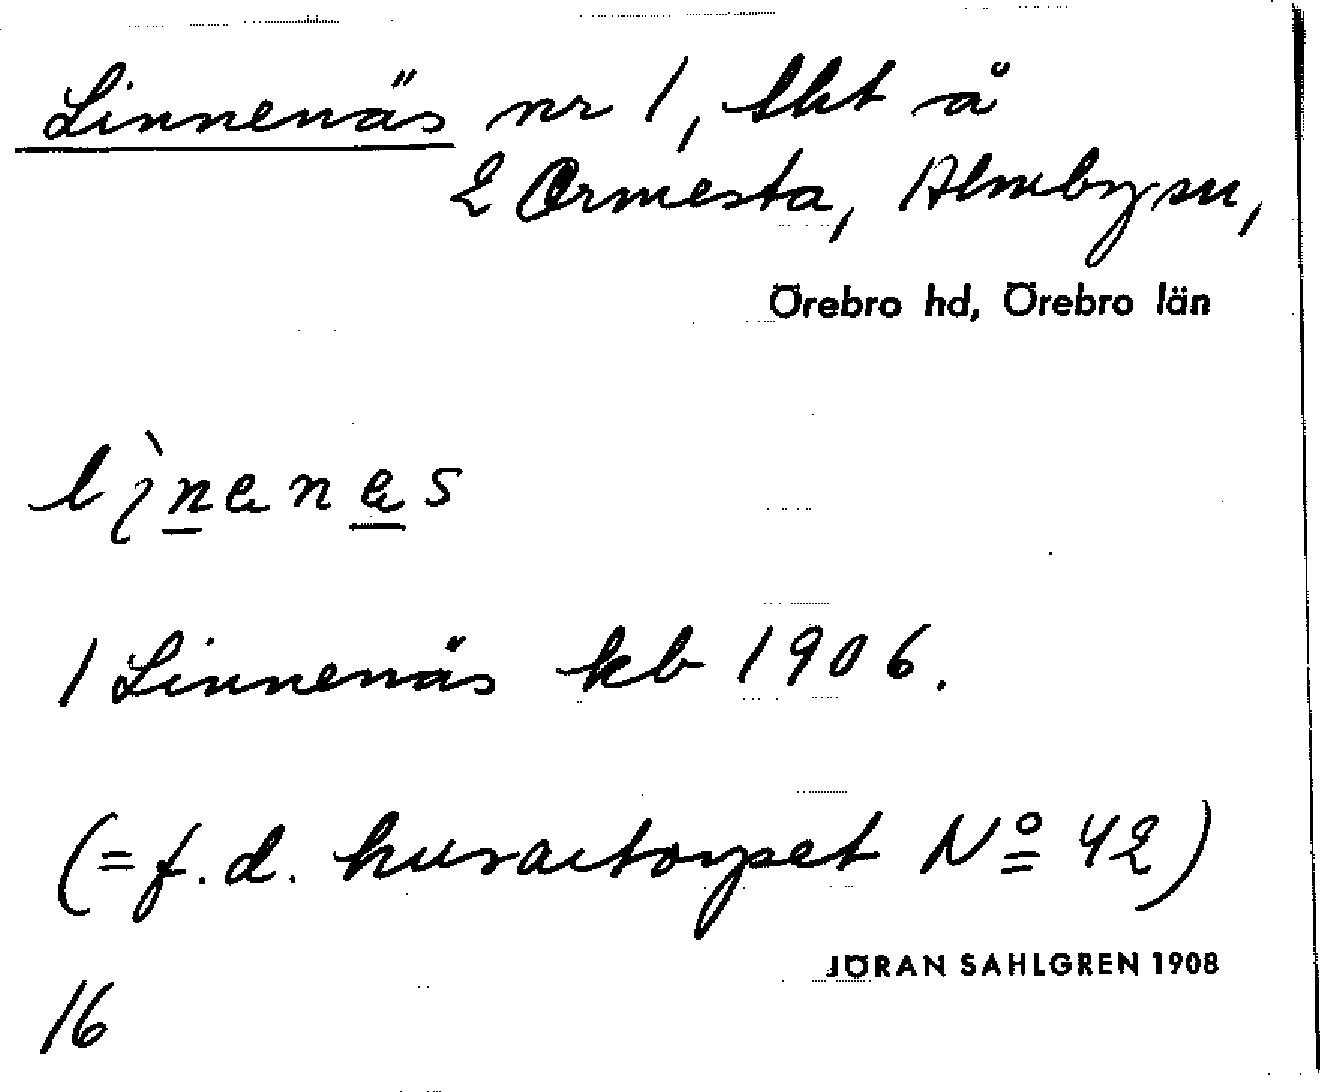 Linnenäs nr 1, lht å
2 Ormesta, Almby sn,
Örebro hd, Örebro län
lìnenes
1 Linnenäs kb 1906.
(= f.d. husartorpet No 42)
JÖRAN SAHLGREN 1908
16